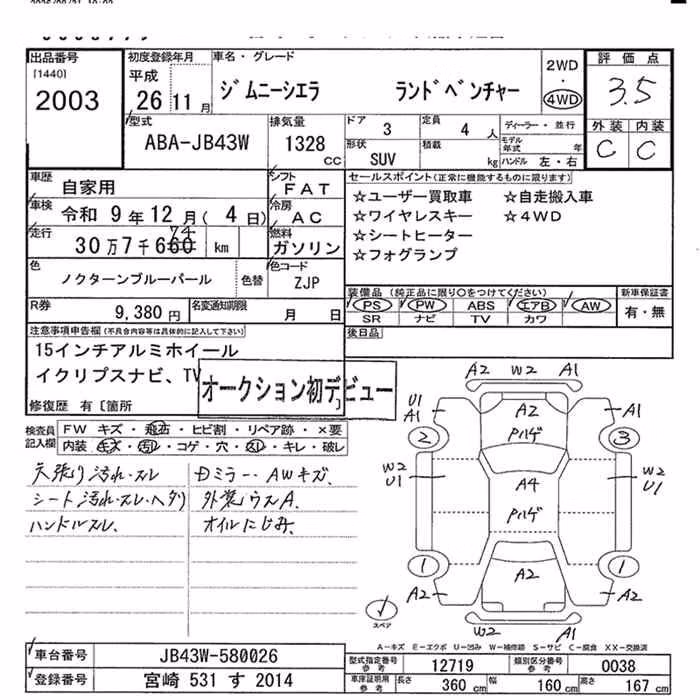 出品番号 初度登録年月 車名・グレード 2WD 評価点
[1440] 平成 ジムニーシエラ ランドベンチャー ・ 3.5
2003 26年 11月 4WD 外装 内装
型式 排気量 ドア 3 定員 4人 ディーラー・並行 C C
ABA-JB43W 1328cc 形状 SUV 積載 kg モデル年式 年
ハンドル 左・右
車歴 自家用 シフト FAT セールスポイント(正常に機能するものに限ります)
車検 令和 9年 12月( 4日) 冷房 AC ☆ユーザー買取車 ☆自走搬入車
走行 30万7千660 74 km 燃料 ガソリン ☆ワイヤレスキー ☆4WD
☆シートヒーター
☆フォグランプ
色 ノクターンブルーパール 色替 色コード ZJP
R券 9,380円 名変通知期限 月 日
装備品(純正品に限り○をつけてください) 新車保証書
PS PW ABS エアB AW 有・無
SR ナビ TV カワ
後日品
注意事項申告欄(不具合内容等は具体的に記入して下さい)
15インチアルミホイール
イクリプスナビ、TV
オークション初デビュー
修復歴 有〔箇所
検査員記入欄 FW キズ・飛石・ヒビ割・リペア跡・×要
内装 キズ・汚れ・コゲ・穴・スレ・キレ・破レ
天張り汚れ・スレ Dミラー・AWキズ、
シート汚れ・スレ・ヘタリ 外装ウスA、
ハンドルスレ、 オイルにじみ、
A2 W2 A1
U1 A1 A2 Pハゲ A1
2 3
W2 U1 A4 W2 U1
Pハゲ
1 1
A2 A2 A2
W2 A1
スペア
A-キズ E-エクボ U-凹み W-補修跡 S-サビ C-腐食 XX-交換済
車台番号 JB43W-580026
登録番号 宮崎 531 す 2014
型式指定番号 参考 12719 類別区分番号 参考 0038
車庫証明用 参考 長さ 360cm 幅 160cm 高さ 167cm